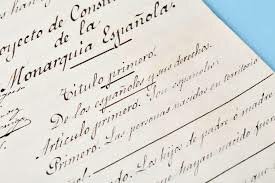 Proyecto de Consti
de la
Monarquía Española.
Título primero.
De los españoles y sus derechos.
Artículo primero. Son españoles:
Primero. Las personas nacidas en territorio
Los hijos de padre ó madre
hayan nacido fuera